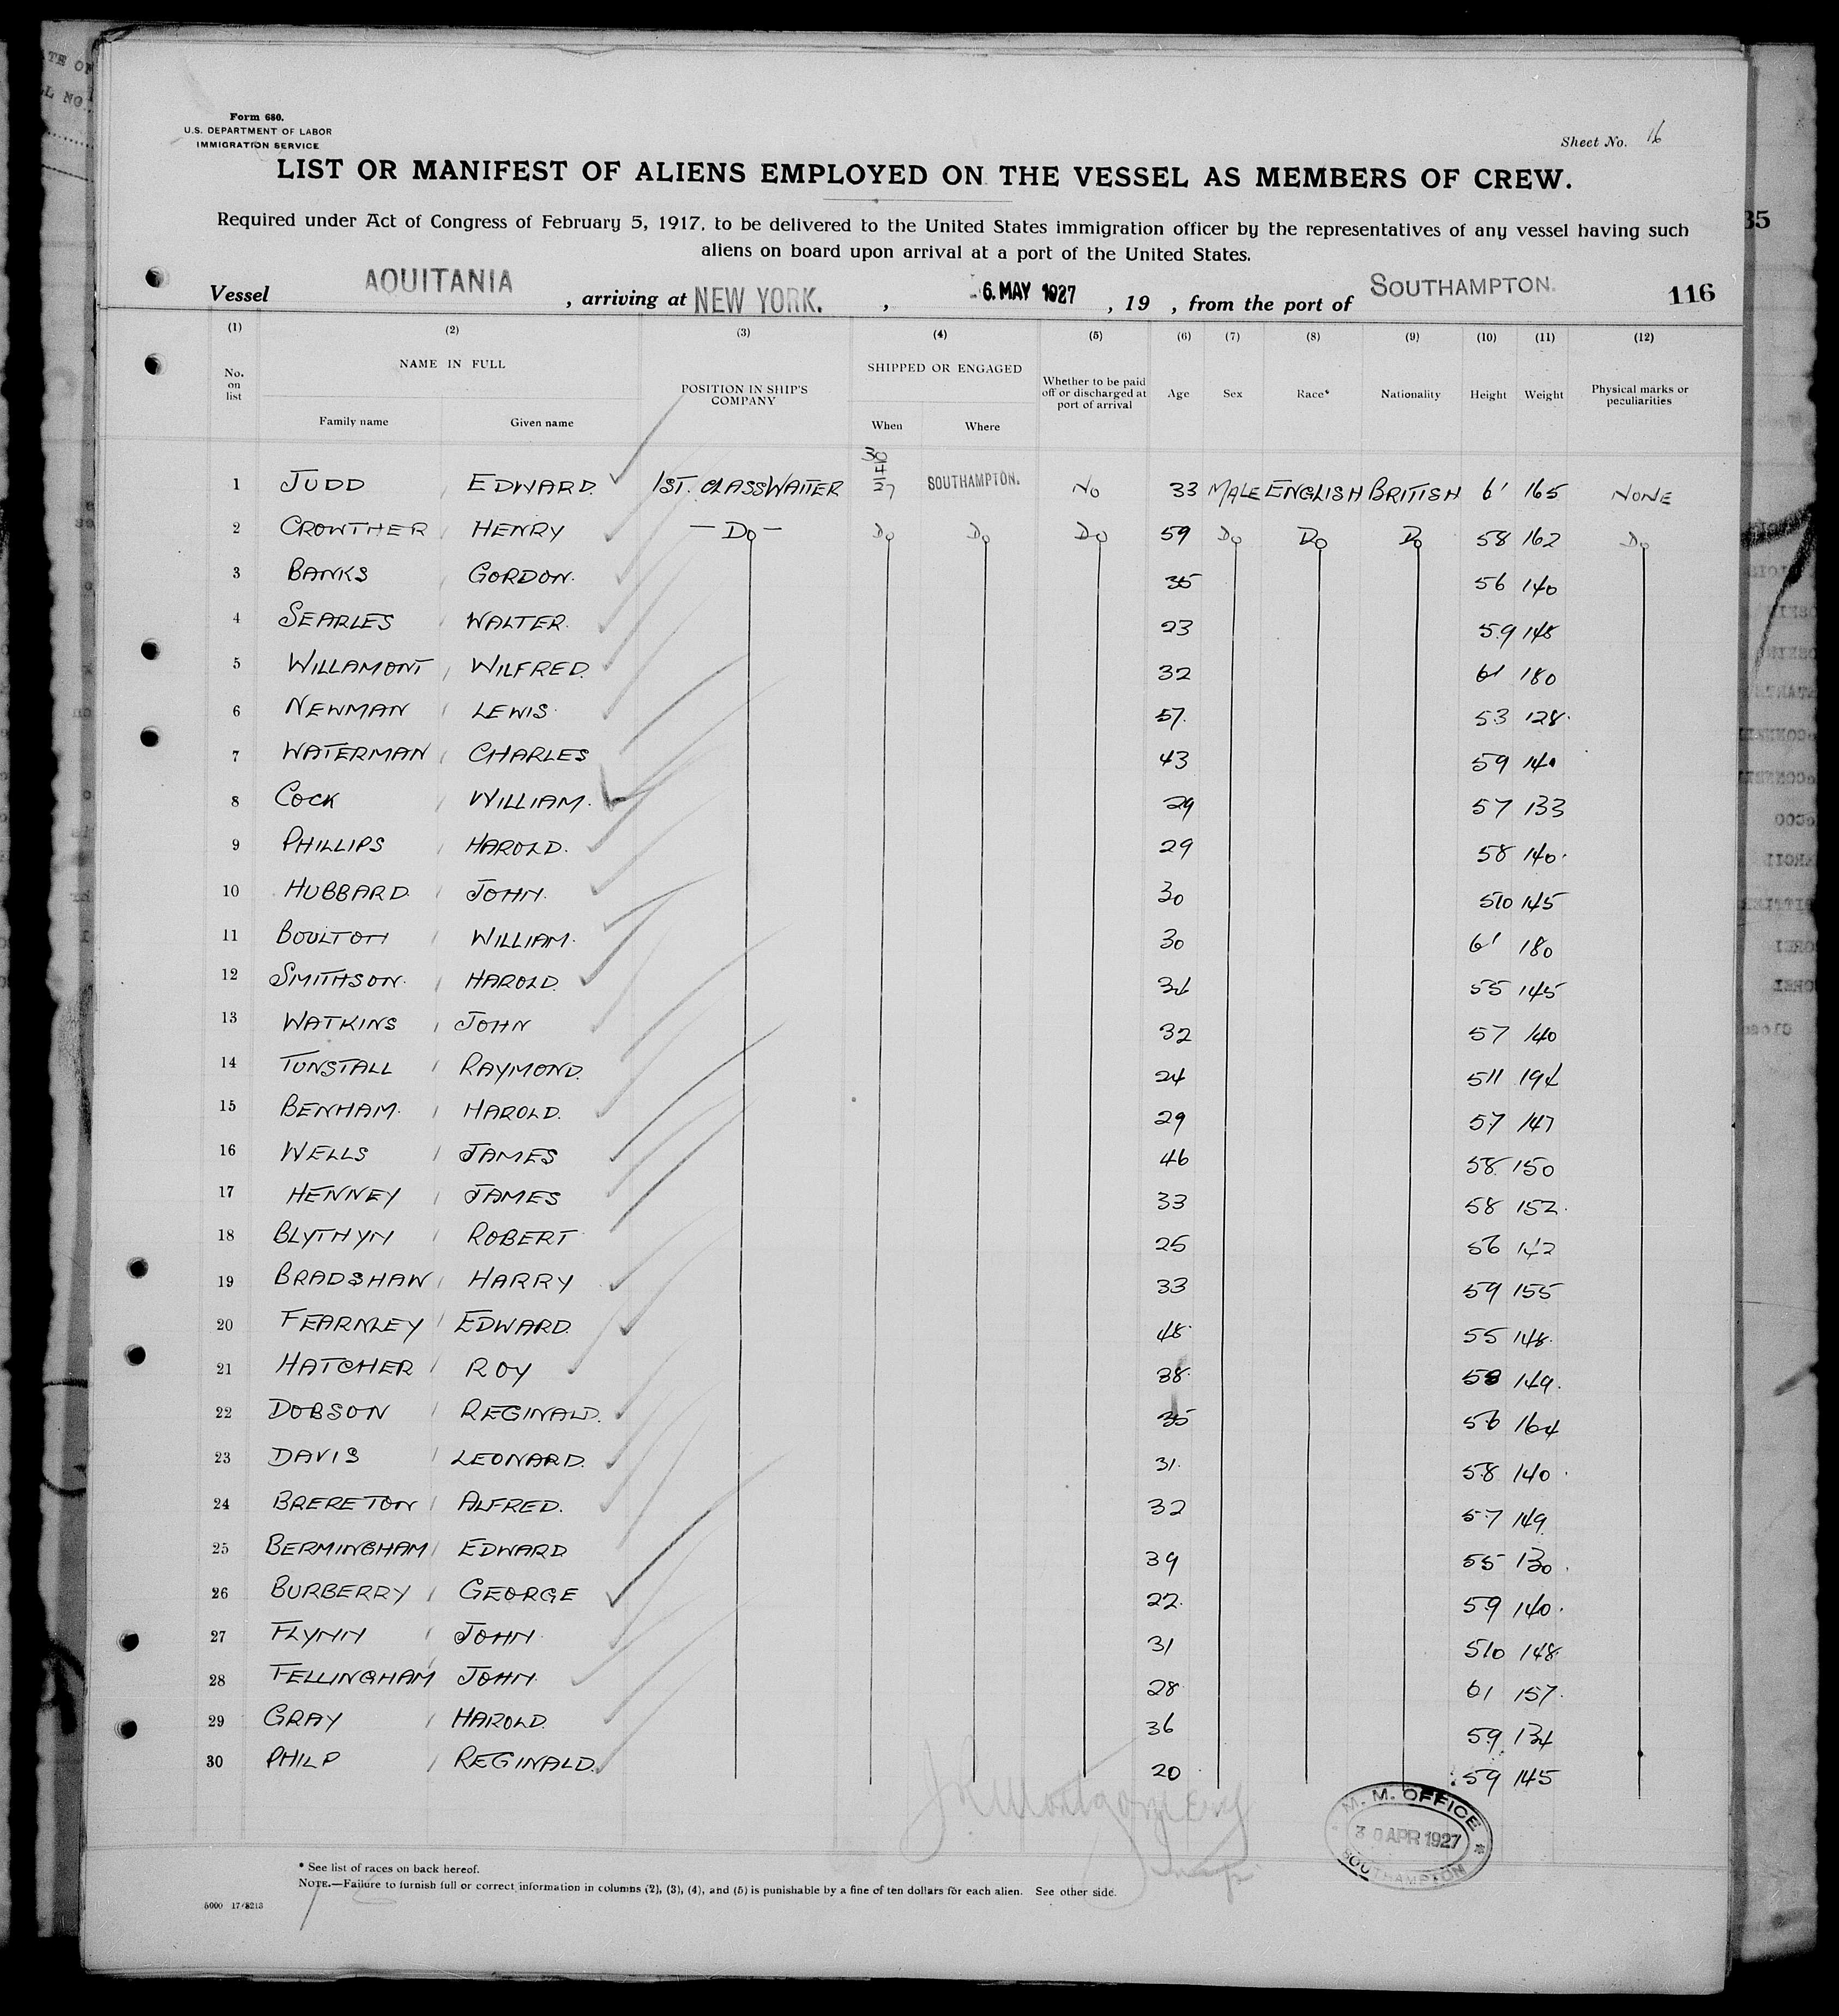 Form 680.
U.S. DEPARTMENT OF LABOR
IMMIGRATION SERVICE
Sheet No. 16
LIST OR MANIFEST OF ALIENS EMPLOYED ON THE VESSEL AS MEMBERS OF CREW.
Required under Act of Congress of February 5, 1917, to be delivered to the United States immigration officer by the representatives of any vessel having such
aliens on board upon arrival at a port of the United States.
Vessel AQUITANIA, arriving at NEW YORK., 6. MAY 1927, 19 , from the port of SOUTHAMPTON. 116
(1) (2) (3) (4) (5) (6) (7) (8) (9) (10) (11) (12)
No. on list NAME IN FULL POSITION IN SHIP'S COMPANY SHIPPED OR ENGAGED Whether to be paid off or discharged at port of arrival Age Sex Race* Nationality Height Weight Physical marks or peculiarities
Family name Given name When Where
1 JUDD EDWARD. 1ST. CLASS WAITER 30/4/27 SOUTHAMPTON. NO 33 MALE ENGLISH BRITISH 6' 165 NONE
2 CROWTHER HENRY — Do — Do Do Do 59 Do Do Do 58 162 Do
3 BANKS GORDON. 35 56 140
4 SEARLES WALTER. 23 59 148
5 WILLAMONT WILFRED. 32 61 180
6 NEWMAN LEWIS. 57. 53 128.
7 WATERMAN CHARLES 43 59 140
8 COCK WILLIAM. 29 57 133
9 PHILLIPS HAROLD. 29 58 140.
10 HUBBARD JOHN. 30 510 145
11 BOULTON WILLIAM. 30 6' 180
12 SMITHSON. HAROLD. 34 55 145
13 WATKINS JOHN 32 57 140
14 TUNSTALL RAYMOND. 24 511 194
15 BENHAM. HAROLD. 29 57 147
16 WELLS JAMES 46 58 150
17 HENNEY JAMES 33 58 152.
18 BLYTHYN ROBERT 25 56 142
19 BRADSHAW HARRY 33 59 155
20 FEARNLEY EDWARD. 48. 55 148.
21 HATCHER ROY 38. 58 149.
22 DOBSON REGINALD. 35 56 164
23 DAVIS LEONARD. 31. 58 140.
24 BRERETON ALFRED. 32 57 149.
25 BERMINGHAM EDWARD 39 55 130.
26 BURBERRY GEORGE 22. 59 140.
27 FLYNN JOHN. 31 510 148.
28 FELLINGHAM JOHN. 28 61 157.
29 GRAY HAROLD. 36 59 134
30 PHILP REGINALD. 20 59 145
M. M. OFFICE
30 APR 1927
SOUTHAMPTON
* See list of races on back hereof.
NOTE.—Failure to furnish full or correct information in columns (2), (3), (4), and (5) is punishable by a fine of ten dollars for each alien. See other side.
5000 17/8213